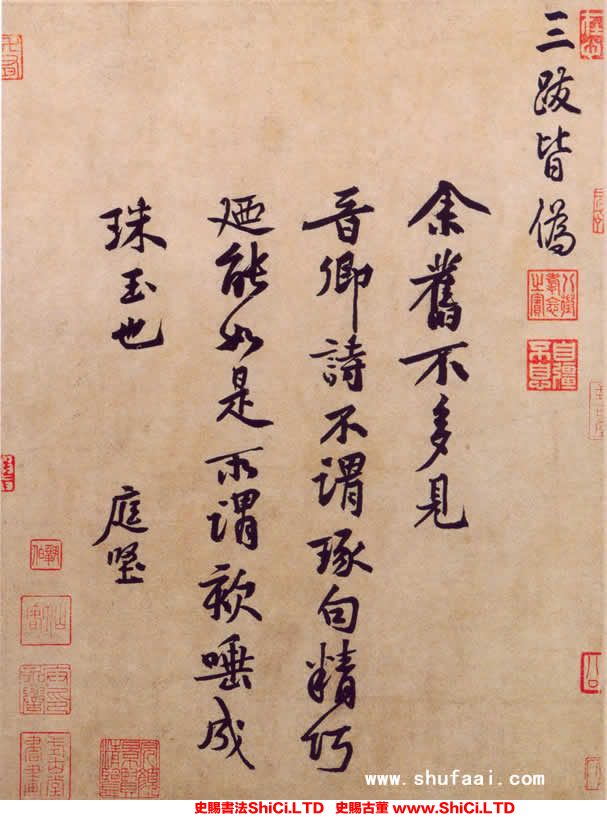 三跋皆偽
八徵耄念之寶
自彊不息
余舊不多見
晉卿詩不謂琢句精巧
廼能如是所謂欬唾成
珠玉也
庭堅
式古堂書畫
www.shufaai.com
史賜書法ShiCi.LTD 史賜古董 www.ShiCi.LTD